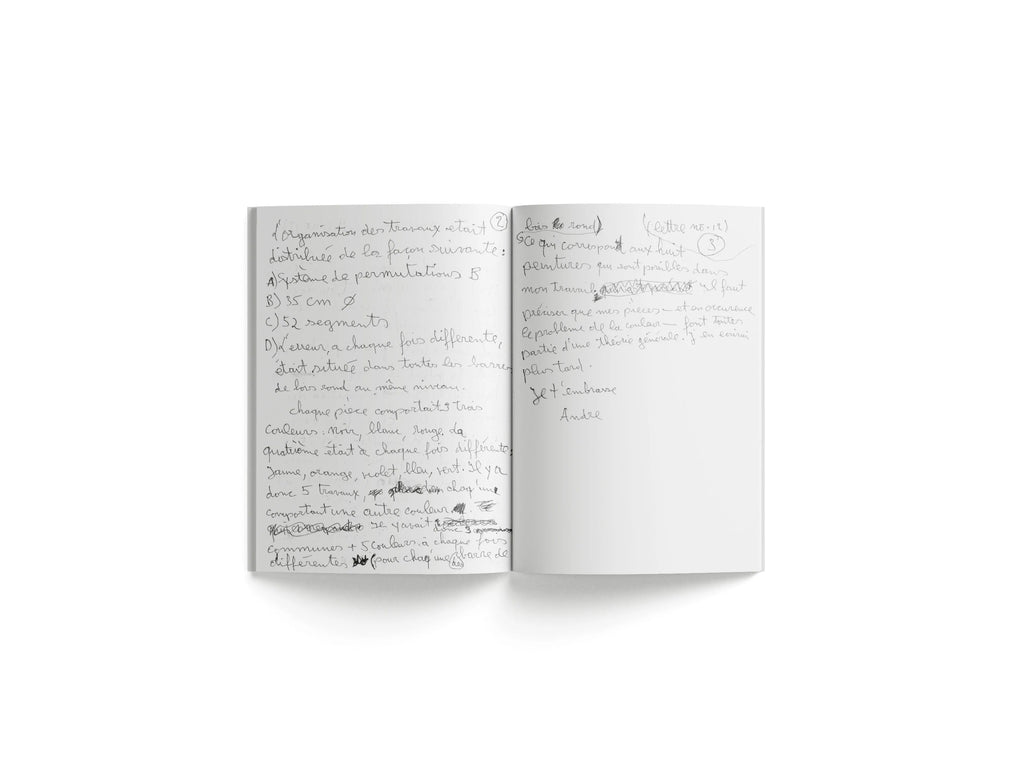 L'organisation des travaux était
②
distribuée de la façon suivante:
A) Système de permutations B
B) 35 cm Ø
C) 52 segments
D) L'erreur, à chaque fois différente,
était située dans toutes les barres
de bois rond au même niveau.
chaque pièce comportait 3 trois
couleurs: noir, blanc, rouge. La
quatrième était à chaque fois différente:
Jaune, orange, violet, bleu, vert. Il y a
donc 5 travaux, chaq'une
comportant une autre couleur
Il y avait donc 3
communes + 5 couleurs à chaque fois
différentes (pour chaq'une des barre de
bois rond)
(lettre no. 12)
3
Ce qui correspond aux huit
peintures qui sont possibles dans
mon travail. il faut
préciser que mes pièces — et en occurence
le problème de la couleur — font toutes
partie d'une théorie générale. J'en écrirai
plus tard.
Je t'embrasse
Andre